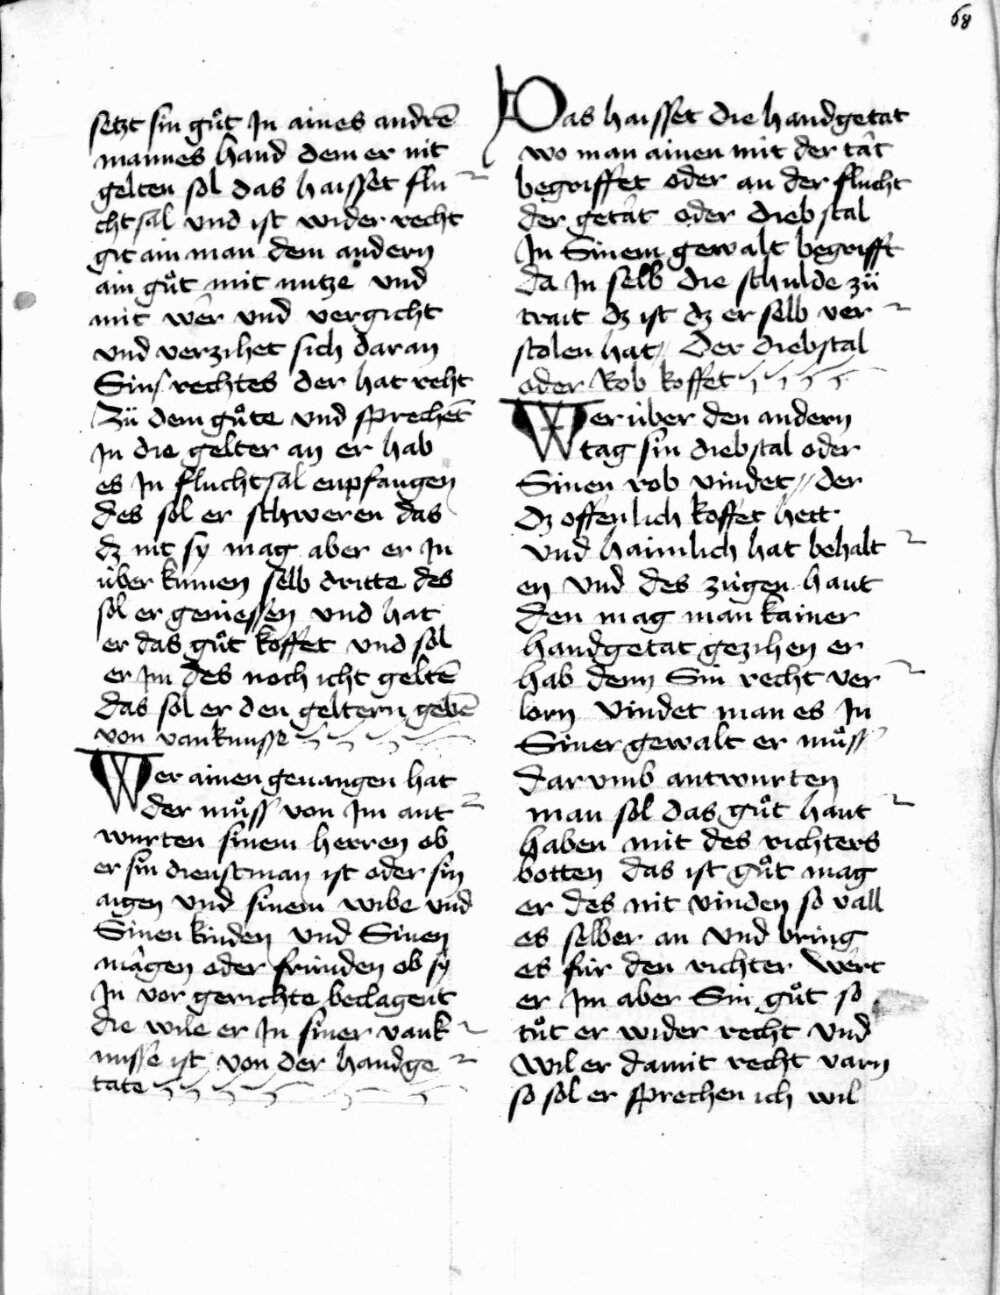 68
setzt sin guͦt Jn aines andrē
mannes hand dem er nit
gelten sol das haisset flu
chtsal vnd ist wider recht
git ain man dem andern
ain guͦt mit nutze vnd
mit wêr vnd vergicht
vnd verzihet sich daran
Sins rechtes der hat reht
Zü dem guͦte vnd sprechēt
Jn die gelter an er hab
es Jn fluchtsal enpfangen
des sol er schweren das
dz nit sy mag aber er Jn
über kumen selb dritte des
sol er geniessen vnd hat
er das guͦt koffet vnd sol
er Jm des noch icht geltē
das sol er den geltern gebē
von vanknusse
Wer ainen geuangen hat
der muͦss von Jm ant
wurten sinem herren ob
er sin dienstman ist oder sin
aigen vnd sinem wibe vnd
Sinen kinden vnd Sinen
mâgen oder frunden ob sy
Jn vor gerichte beclagent
die wile er Jn siner vank
nusse ist von der handge
tate
Das haisset die handgetat
wo man ainen mit der tât
begriffet oder an der flucht
der getât oder diebstal
Jn Sinem gewalt begrifft
da Jn selb die schulde zü
trait dz ist dz er selb ver
stolen hat Der diebstal
oder Rob koffet
Wer über den andern
tag sin diebstal oder
Sinen rob vindet der
dz offenlich koffet hett
vnd haimlich hat behalt
en vnd des zügen haut
den mag man kainer
handgetat gezihen er
hab denn Sin recht ver
lorn vindet man es Jn
Siner gewalt er muͦss
dar vmb antwurten
man sol das guͦt haut
haben mit des richters
botten das ist guͦt mag
er des nit vinden so vall
es selber an vnd bring
es für den richter wert
er Jm aber Sin guͦt so
tuͦt er wider recht vnd
wil er damit recht varn
so sol er sprechen ich wil